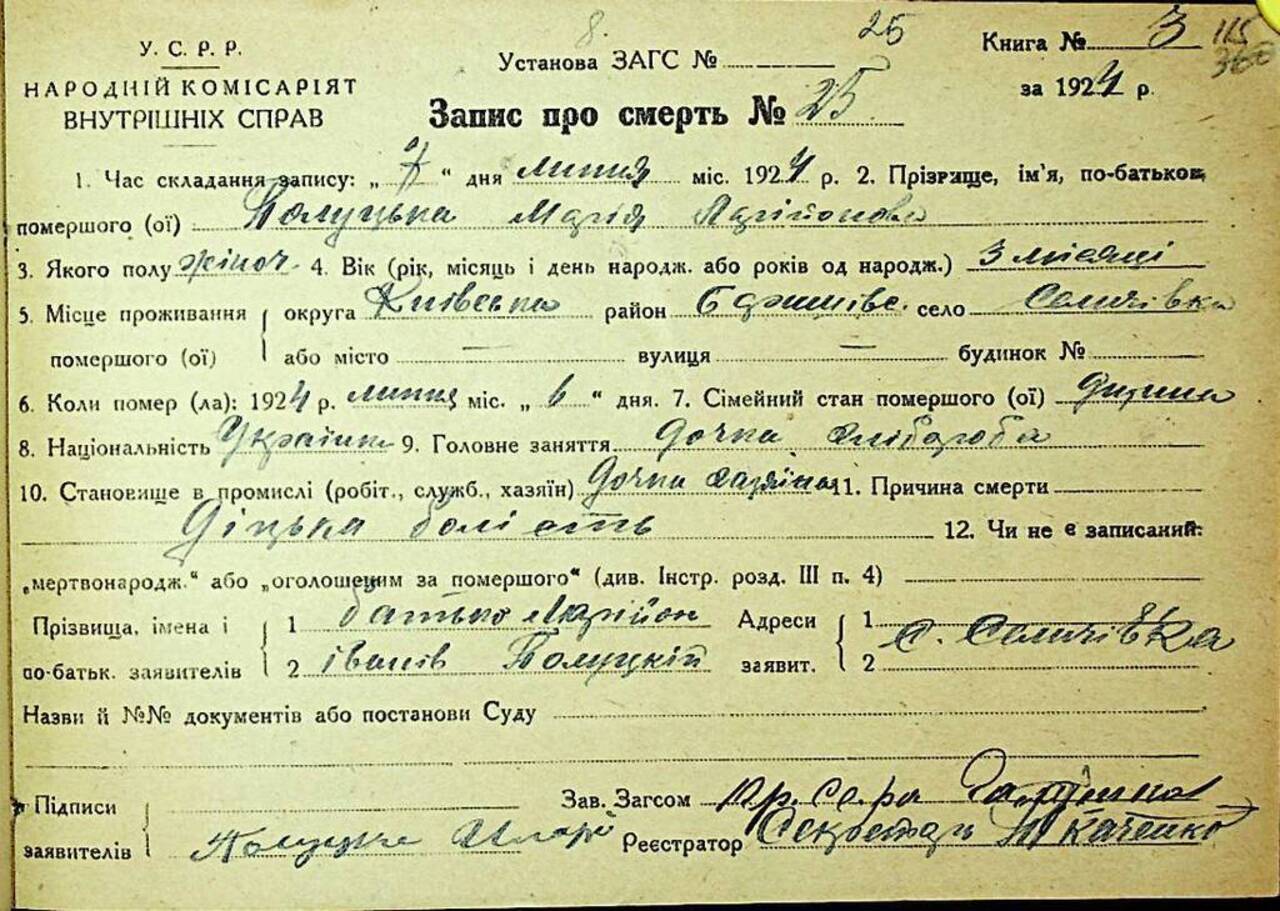 У. С. Р. Р.
НАРОДНІЙ КОМІСАРІЯТ
ВНУТРІШНІХ СПРАВ
8. 25
Установа ЗАГС №
Запис про смерть № 25
Книга № 3 115
за 1924 р.
1. Час складання запису: „ 7 “ дня липня міс. 1924 р. 2. Прізвище, ім'я, по-батькові
помершого (ої) Полуцька Марія Ларійонова
3. Якого полу жіноч. 4. Вік (рік, місяць і день народж. або років од народж.) 3 місяці
5. Місце проживання округа Київська район село
помершого (ої) або місто — вулиця — будинок №
6. Коли помер (ла): 1924 р. липня міс. „ 6 “ дня. 7. Сімейний стан помершого (ої) дитина
8. Національність Українка 9. Головне заняття дочка хлібороба
10. Становище в промислі (робіт., служб., хазяїн) дочка хазяїна 11. Причина смерти
Діцька болість 12. Чи не є записаний:
„мертвонародж.“ або „оголошеним за помершого“ (див. Інстр. розд. III п. 4)
Прізвища, імена і 1 батько Ларійон Адреси 1 с.
по-батьк. заявителів 2 Іванів Полуцкій заявит. 2
Назви й №№ документів або постанови Суду
Підписи Зав. Загсом
заявителів Реєстратор Секретарь Ткаченко